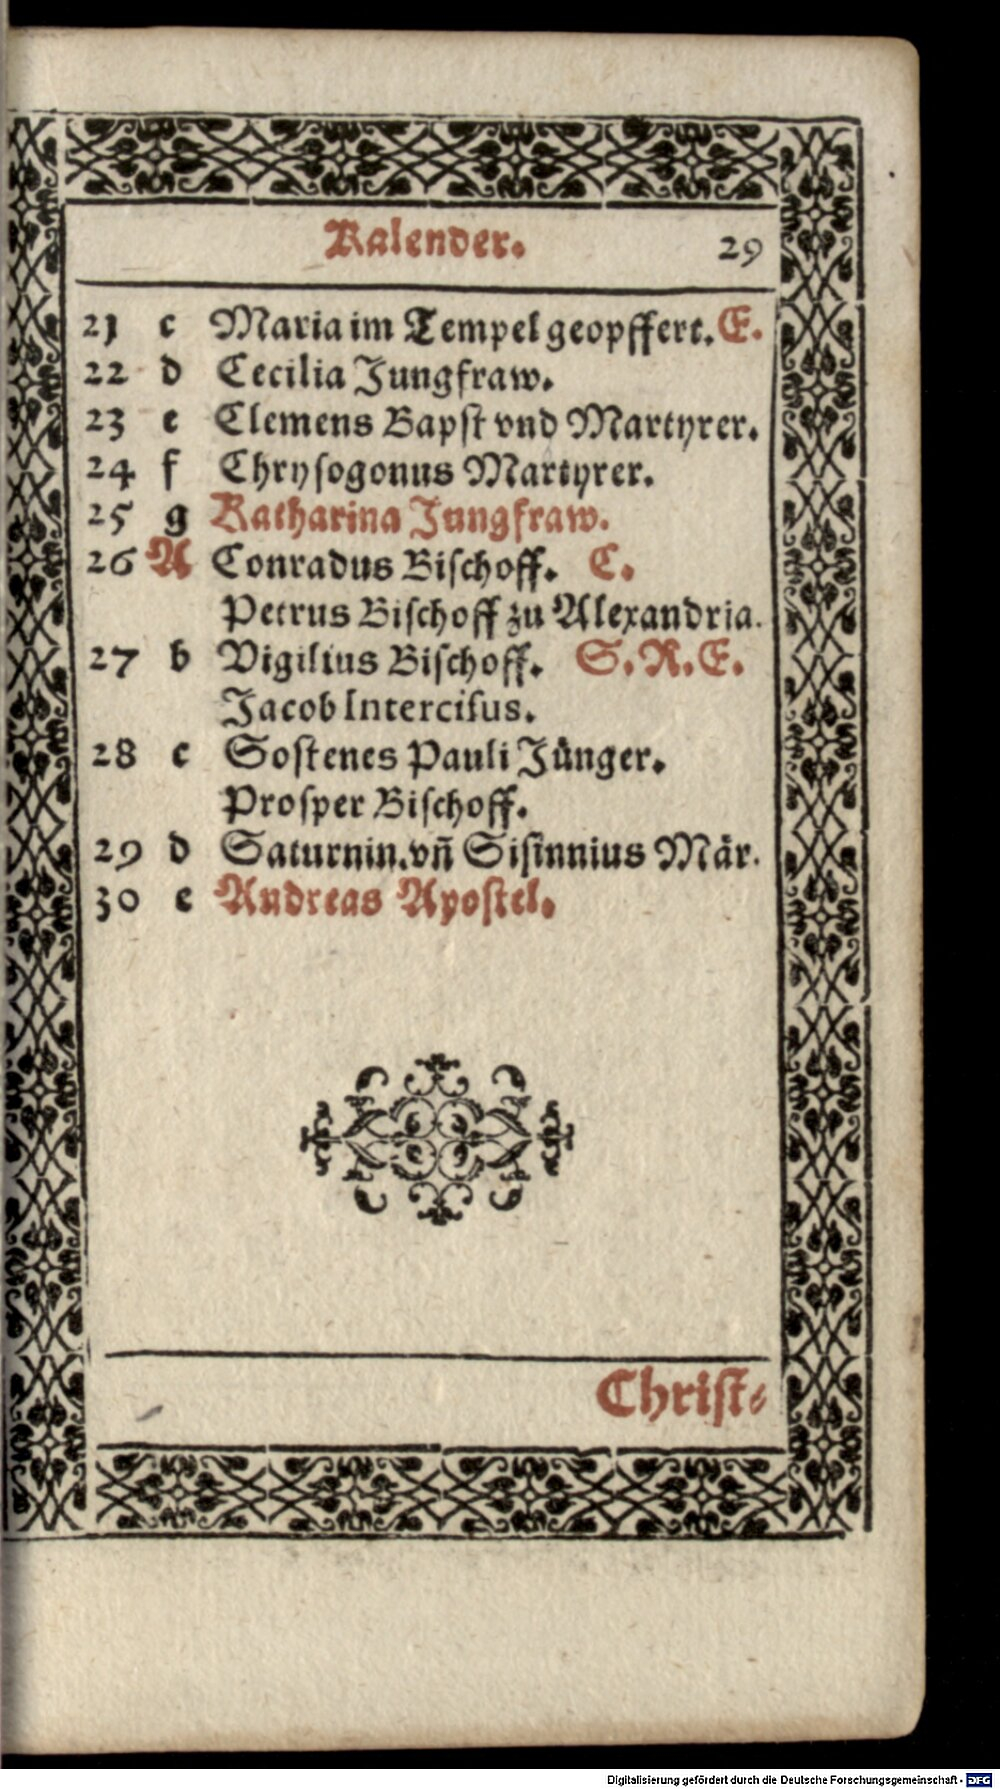 Kalender. 29
21 c Maria im Tempel geopffert. E.
22 d Cecilia Jungfraw.
23 e Clemens Bapst vnd Martyrer.
24 f Chrysogonus Martyrer.
25 g Katharina Jungfraw.
26 A Conradus Bischoff. C.
Petrus Bischoff zu Alexandria.
27 b Vigilius Bischoff. S. R. E.
Jacob Intercisus.
28 c Sostenes Pauli Jünger.
Prosper Bischoff.
29 d Saturnin. vn̄ Sisinnius Mär.
30 e Andreas Apostel.
Christ⸗
Digitalisierung gefördert durch die Deutsche Forschungsgemeinschaft - DFG